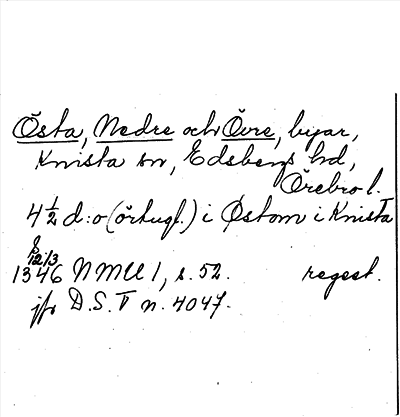 Östa, Nedre och Övre, byar,
Knista sn, Edsbergs hd,
Örebro l.
4½ d:o (örtugl.) i Østom i Knista
12/3
1346 NMU 1, s. 52. regest.
jfr D.S. V n. 4047.